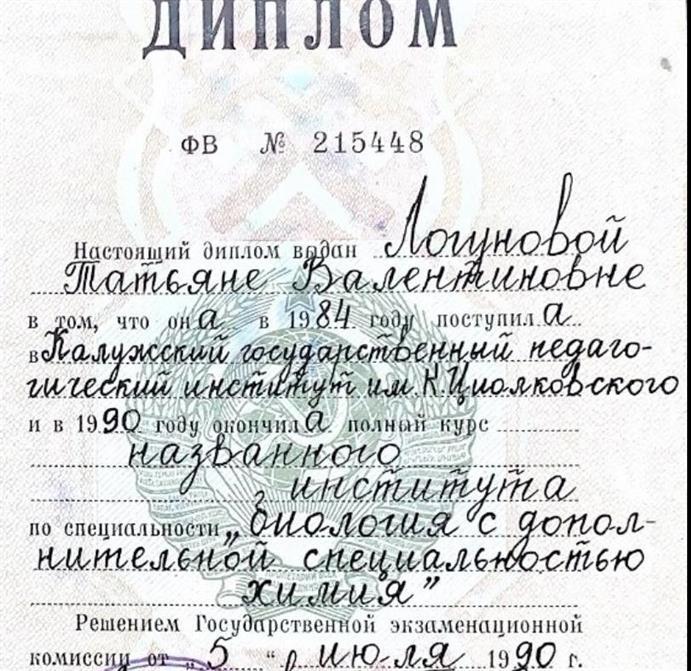 ДИПЛОМ
ФВ № 215448
Настоящий диплом выдан Логуновой
Татьяне Валентиновне
в том, что она в 1984 году поступила
в Калужский государственный педаго-
гический институт им. К. Циолковского
и в 1990 году окончила полный курс
названного
института
по специальности „биология с допол-
нительной специальностью
химия”
Решением Государственной экзаменационной
комиссии от „5“ июля 1990 г.